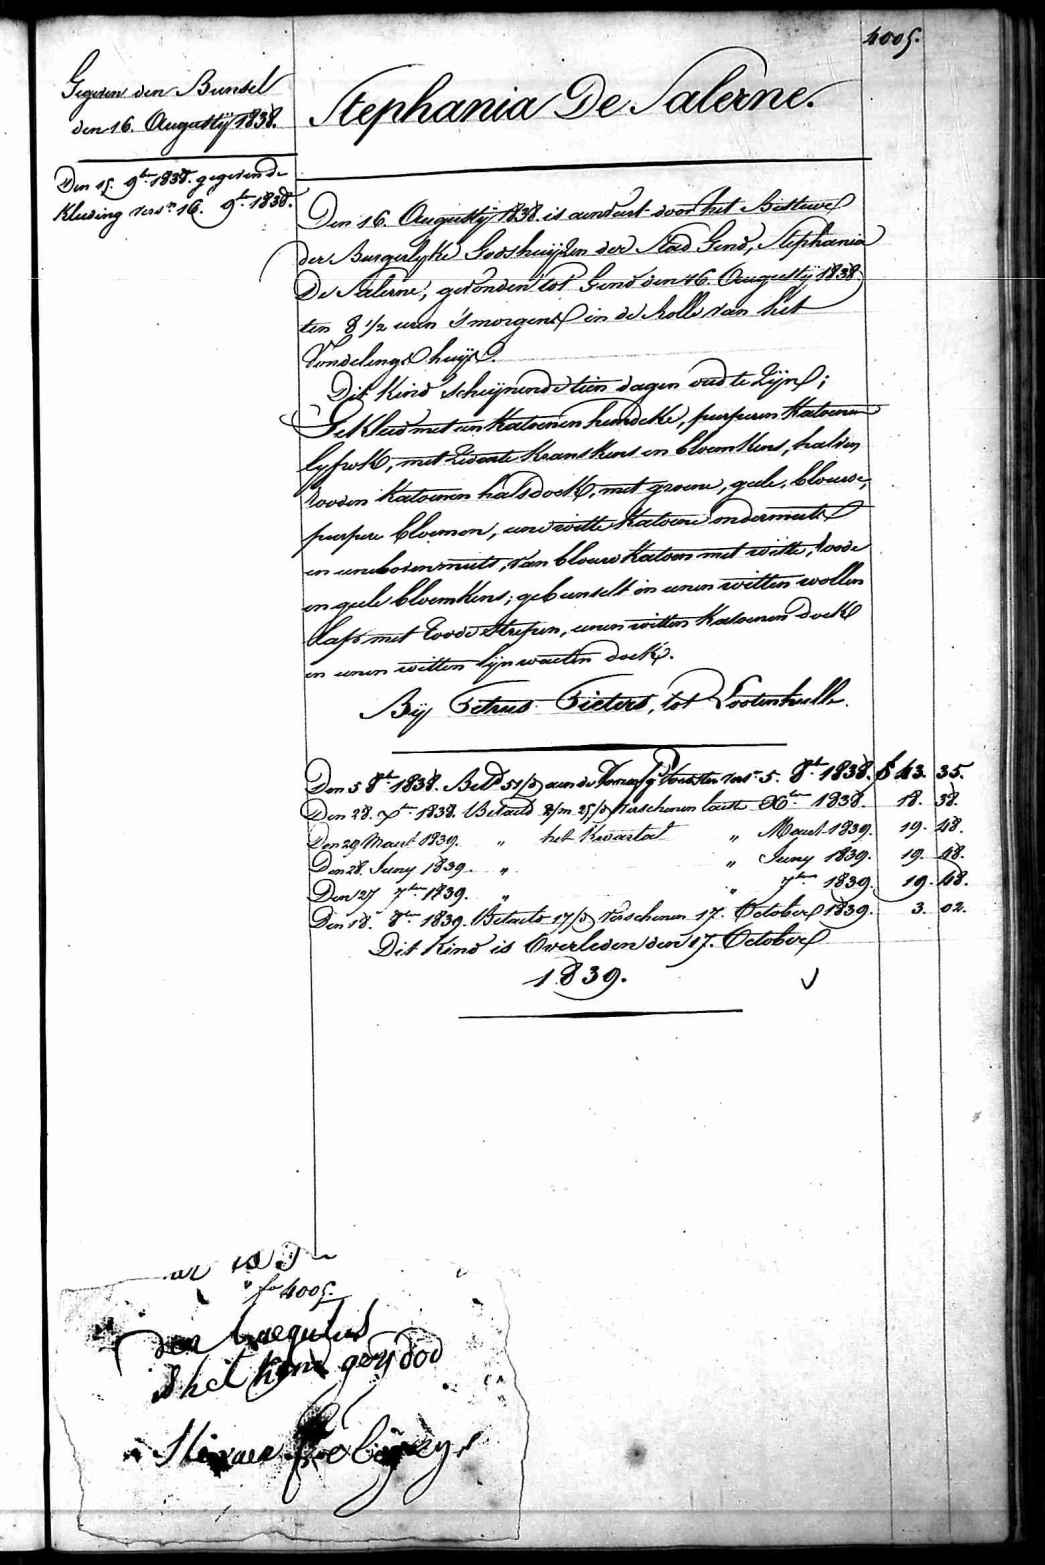 4005.
Gegeven den Bunsel
den 16. Augustij 1838.
Den 15. 9br 1838. gegeven de
Kleeding versn 16. 9br 1838.
Stephania De Salerne.
Den 16. Augustij 1838. is aenveert door het Bestuer
der Burgerlyke Godshuijzen der Stad Gend, Stephania
De Salerne, gevonden tot Gend den 16. Augustij 1838.
ten 8 1/2 uren 's morgens in de Rolle van het
Vondelingshuijs.
Dit Kind scheijnende tien dagen oud te zijn;
Gekleed met een Katoenen hemdeke, purperen Katoenen
lyfrok, met witte Kranskens en bloemkens, halven
rooden Katoenen halsdoek, met groene, geele, blouwe,
purpere bloemen, eene witte Katoene ondermuts
en eene bovenmuts, van blouw Katoen met witte, roode
en geele bloemkens; gebunselt in eenen witten wollen
laps met roode strepen, eenen witten Katoenen doek
en eenen witten lynwaeten doek.
Bij Petrus Pieters, tot Lootenhulle.
Den 5 8br 1838. Betd 51/d aen de Voedster versn 5. 8br 1838. f 43. 35.
Den 28. Xbr 1838. Betaeld 2/m 25/d verschenen laeste Xber 1838. 18. 38.
Den 29 Maert 1839. " het Kwartael " Maert 1839. 19. 48.
Den 28. Juny 1839. " " Juny 1839. 19. 48.
Den 27 7ber 1839. " " 7ber 1839. 19. 48.
Den 18. 8br 1839. Betaeld 17/d verschenen 17. October 1839. 3. 02.
Dit Kind is Overleden den 17. October
1839.
fo 4005.
den
het Kind
dod